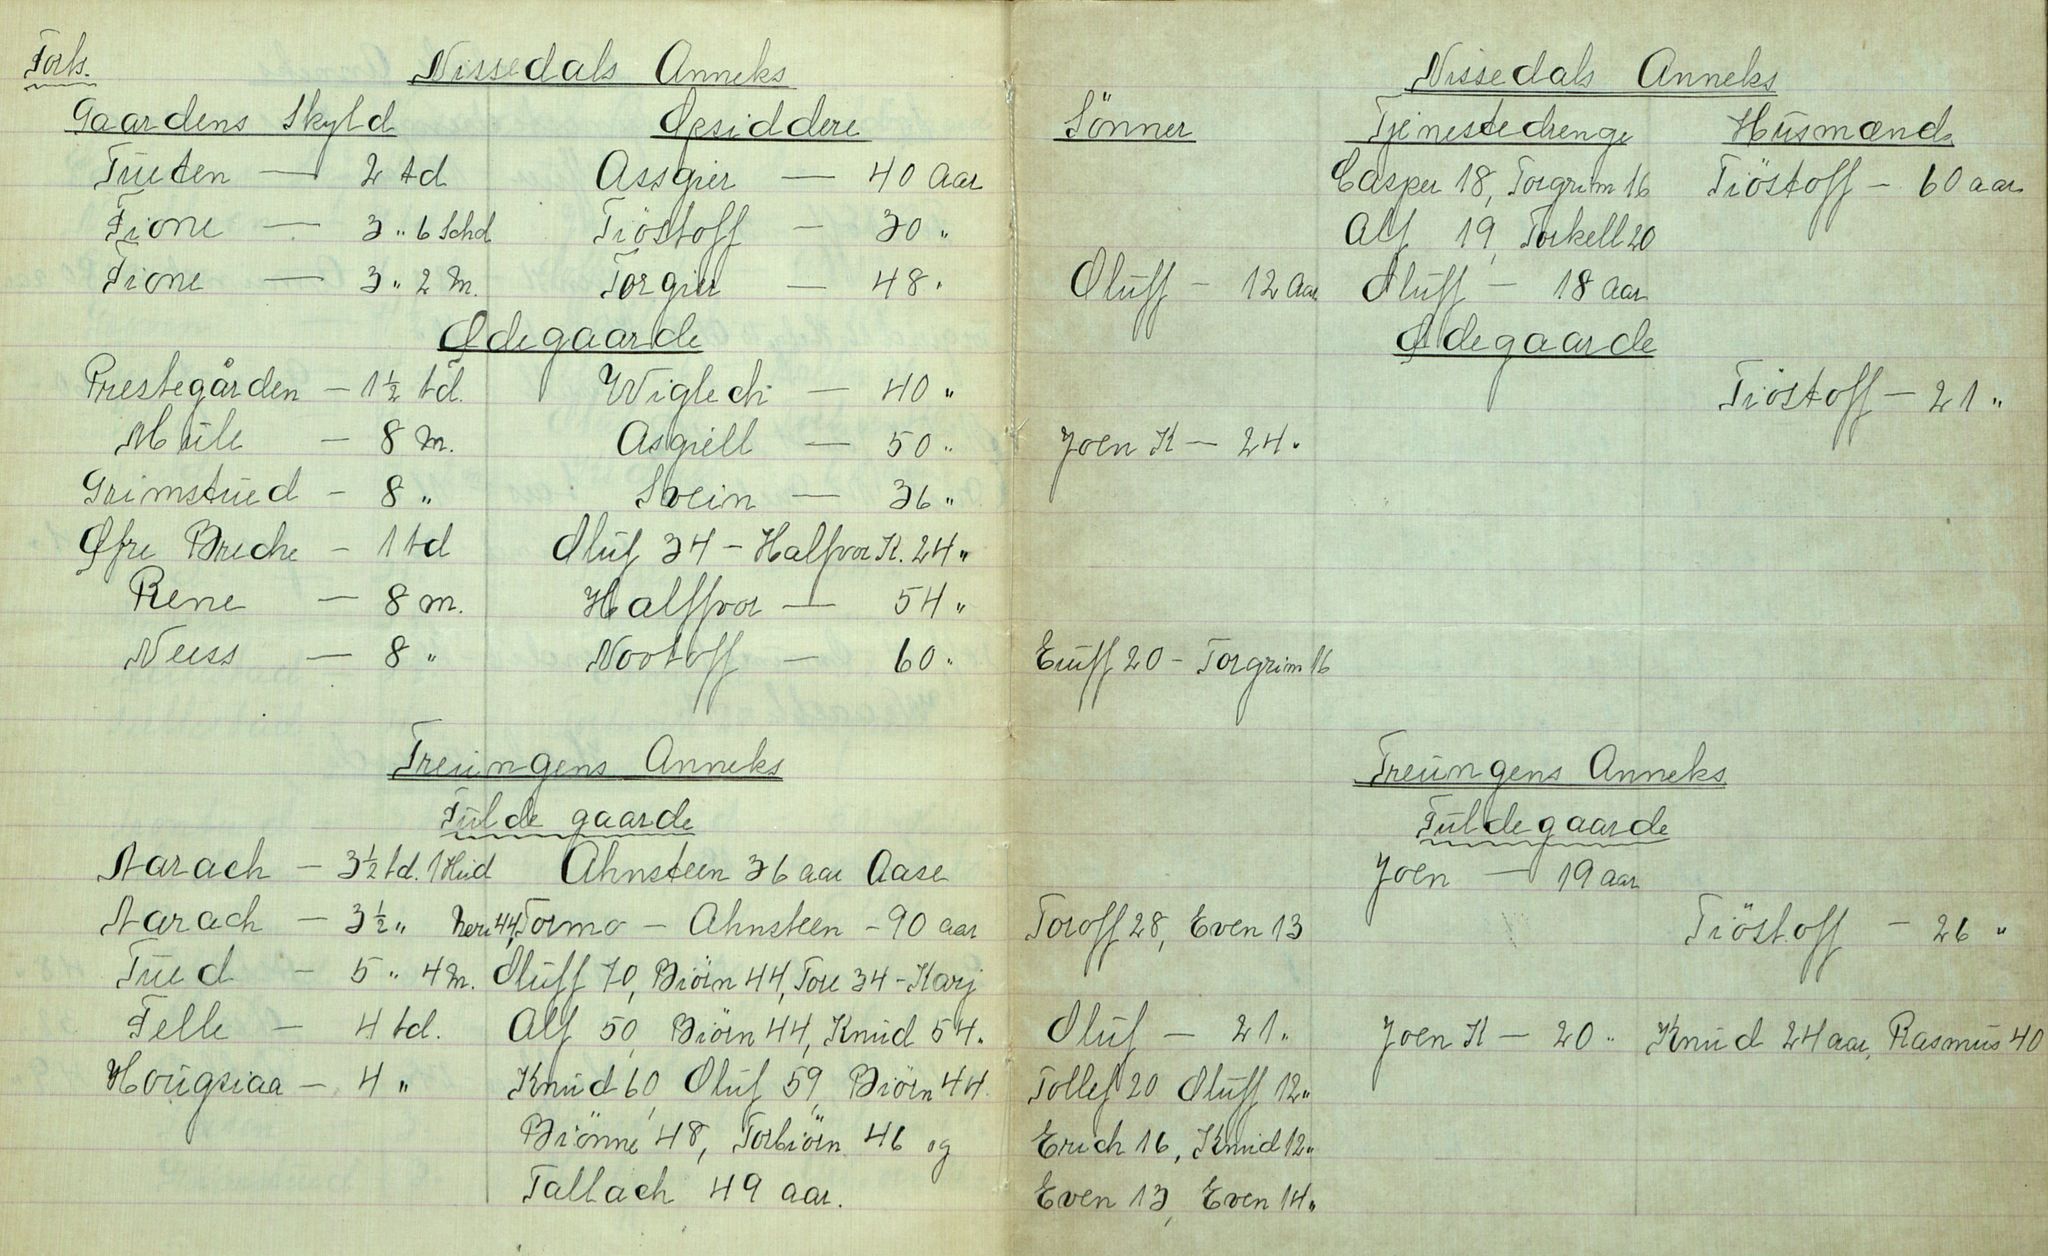 Forts.
Nissedals Anneks
Gaardens Skyld Opsiddere
Tueten — 2 td Assgier — 40 Aar
Fione — 3 „ 6 Schd Tiöstoff — 30 „
Fione — 3 „ 2 m. Torgier — 48 „
Ødegaarde
Prestegården — 1½ td. Wigleck — 40 „
Mule — 8 m. Asgiell — 50 „
Grimstued — 8 „ Svein — 36 „
Øfre Breche — 1 td Oluf 34 — Halfvor K. 24 „
Rene — 8 m. Halffvor — 54 „
Neess — 8 „ Nootoff — 60 „
Treungens Anneks
Fulde gaarde
Aarach — 3½ td. 1 Hud Ahnsteen 36 aar Aase
Aarach — 3½ „ Neri 44, Tormo — Ahnsteen — 90 aar
Tued — 5 „ 4 m. Oluff 70, Biörn 44, Tore 34 — Karj
Felle — 4 td. Alf 50, Biörn 44, Knud 54 „
Hougsiaa — 4 „ Knud 60, Oluf 59, Biörn 44
Biönne 48, Torbiörn 46 og
Tallach 49 aar.
Nissedals Anneks
Sönner Tjenestedrenge Husmænd
Casper 18, Torgrim 16 Tiöstoff — 60 aar
Alf 19, Torkell 20
Oluff — 12 Aar Oluff — 18 Aar
Ødegaarde
Tiöstoff — 21 „
Joen K — 24 „
Euff 20 — Torgrim 16
Treungens Anneks
Fuldegaarde
Joen — 19 aar
Toroff 28, Even 13 Tiöstoff — 26 „
Oluf — 21 „ Joen K — 20 „ Knud 24 aar, Rasmus 40
Tollef 20 Oluff 12 „
Erich 16, Knud 12 „
Even 13, Even 14 „